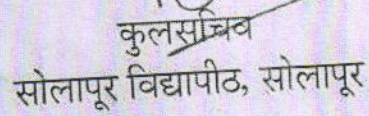 कुलसचिव
सोलापूर विद्यापीठ, सोलापूर